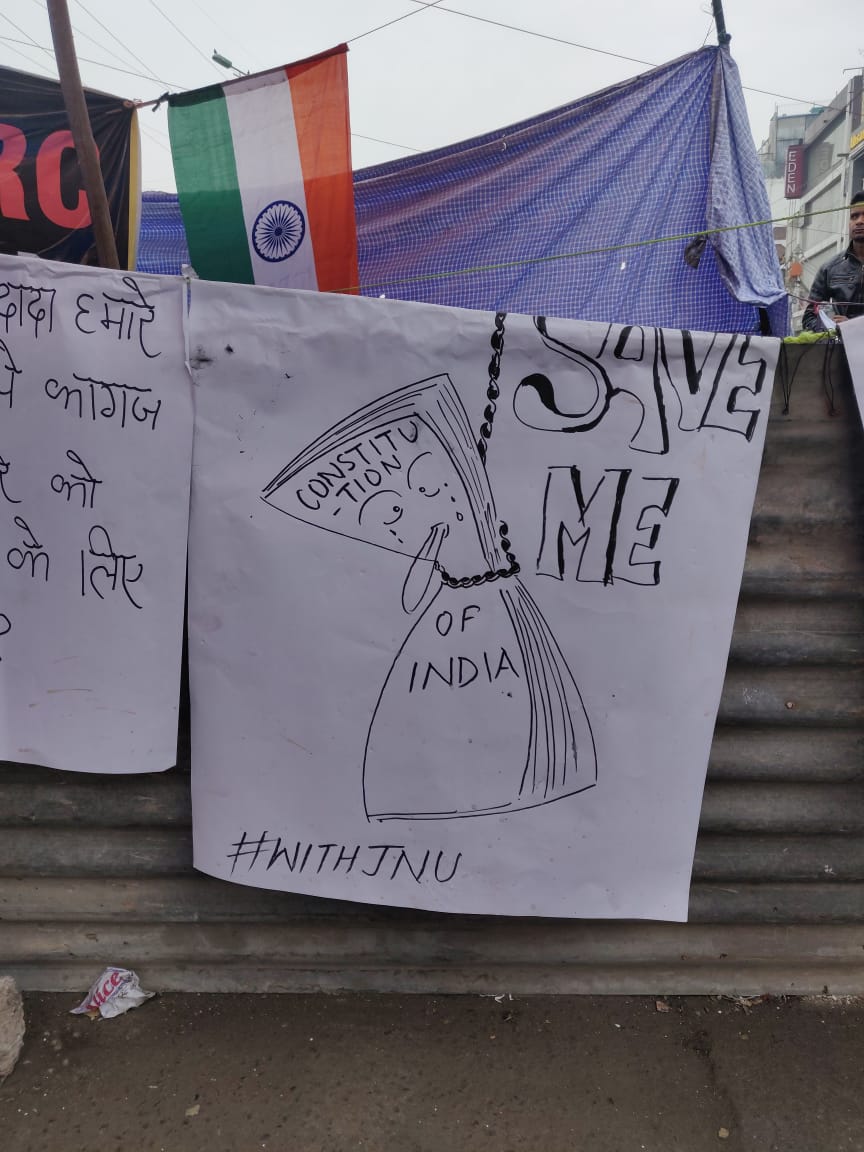 RC
EDEN
दादा हमारे
कागज
को
के लिए
SAVE
ME
CONSTITU
-TION
OF
INDIA
#WITHJNU
Nice